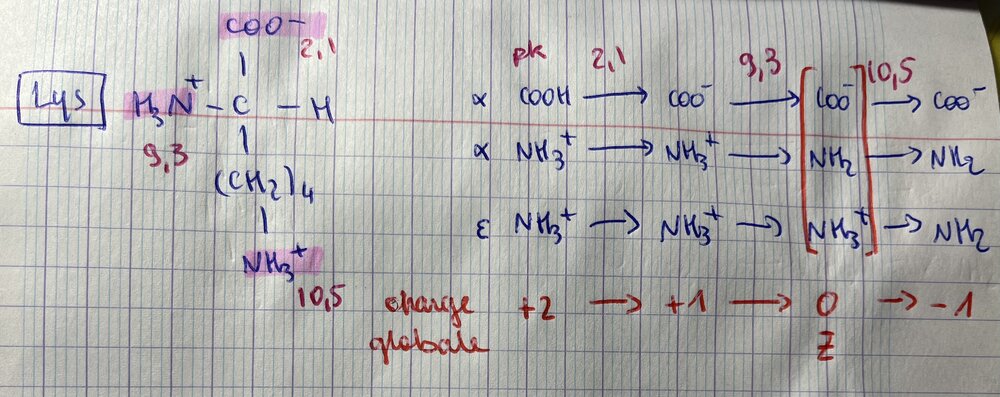 Lys
COO⁻
2,1
H₃N⁺ – C – H
9,3
(CH₂)₄
NH₃⁺
10,5
pk 2,1 9,3 10,5
α COOH → COO⁻ → [COO⁻ → COO⁻
α NH₃⁺ → NH₃⁺ → NH₂ → NH₂
ε NH₃⁺ → NH₃⁺ → NH₃⁺] → NH₂
charge +2 → +1 → 0 → -1
globale Z